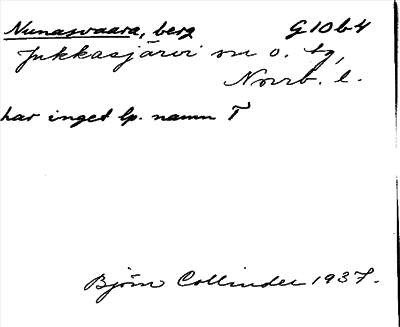 Nunasvaara, berg G10b4
Jukkasjärvi sn o. tg,
Norrb. l.
har inget lp. namn T
Björn Collinder 1937.